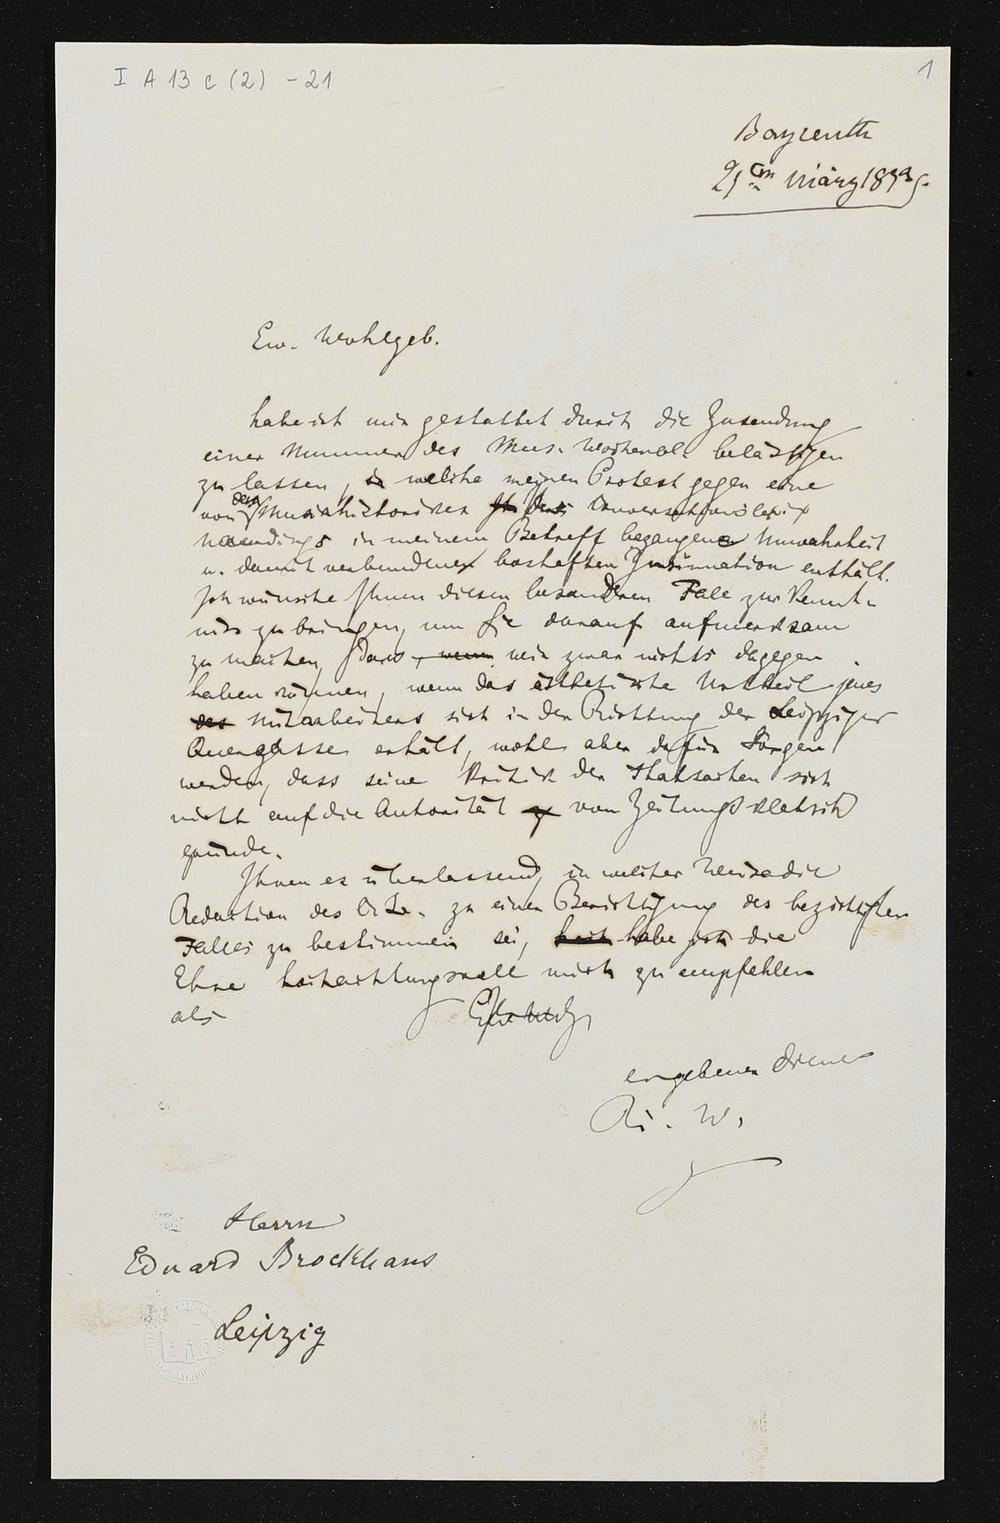 I A 13 c (2) - 21
1
Bayreuth
März 187
Ew. Wohlgeb.
habe ich mir gestattet durch die Zusendung
einer Nummer des Mus. Wochenbl. belästigen
zu lassen, welche meinen Protest gegen eine
von dem Musikhistoriker Conversationslexix
neuerdings in meinem Betreff begangene Unwahrheit
u. damit verbundenen boshaften Insinuation enthält.
Ich wünsche Ihnen diesen besonderen Fall zur Kennt-
niss zu bringen, um Sie darauf aufmerksam
zu machen, dass wir zwar nichts dagegen
haben können, wenn das ästhetische Urtheil jenes
Mitarbeiters sich in der Richtung der Leipziger
erhält, wohl aber dafür Sorgen
werden, dass seine Kritik der Thatsachen sich
nicht auf die Autorität von Zeitungsklatsch
gründe.
Ihnen es überlassend, in welcher Weise die
Redaction des zu einer Berichtigung des bezichtigten
Falles zu bestimmen sei, habe ich die
Ehre hochachtungsvoll mich zu empfehlen
als
ergebener Diener
Ri. W.
Herrn
Eduard Brockhaus
Leipzig